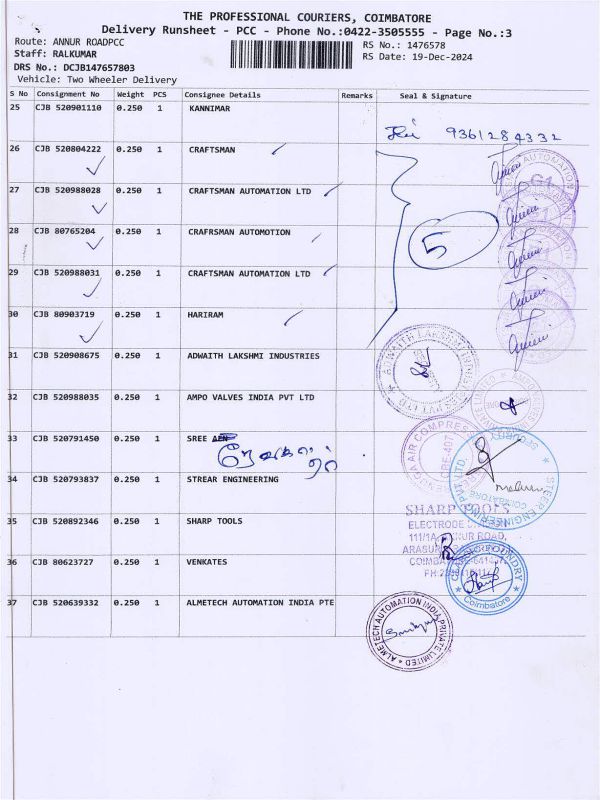 THE PROFESSIONAL COURIERS, COIMBATORE
Delivery Runsheet - PCC - Phone No.:0422-3505555 - Page No.:3
Route: ANNUR ROADPCC
RS No.: 1476578
Staff: RALKUMAR
RS Date: 19-Dec-2024
DRS No.: DCJB147657803
Vehicle: Two Wheeler Delivery
S No Consignment No Weight PCS Consignee Details Remarks Seal & Signature
25 CJB 520901110 0.250 1 KANNIMAR
9361284332
26 CJB 520804222 0.250 1 CRAFTSMAN
27 CJB 520988028 0.250 1 CRAFTSMAN AUTOMATION LTD
28 CJB 80765204 0.250 1 CRAFRSMAN AUTOMOTION
5
29 CJB 520988031 0.250 1 CRAFTSMAN AUTOMATION LTD
30 CJB 80903719 0.250 1 HARIRAM
31 CJB 520908675 0.250 1 ADWAITH LAKSHMI INDUSTRIES
32 CJB 520988035 0.250 1 AMPO VALVES INDIA PVT LTD
33 CJB 520791450 0.250 1 SREE
34 CJB 520793837 0.250 1 STREAR ENGINEERING
35 CJB 520892346 0.250 1 SHARP TOOLS
SHARP TOOLS
ELECTRODE
36 CJB 80623727 0.250 1 VENKATES
Coimbatore
37 CJB 520639332 0.250 1 ALMETECH AUTOMATION INDIA PTE
ALMETECH AUTOMATION INDIA PRIVATE LIMITED